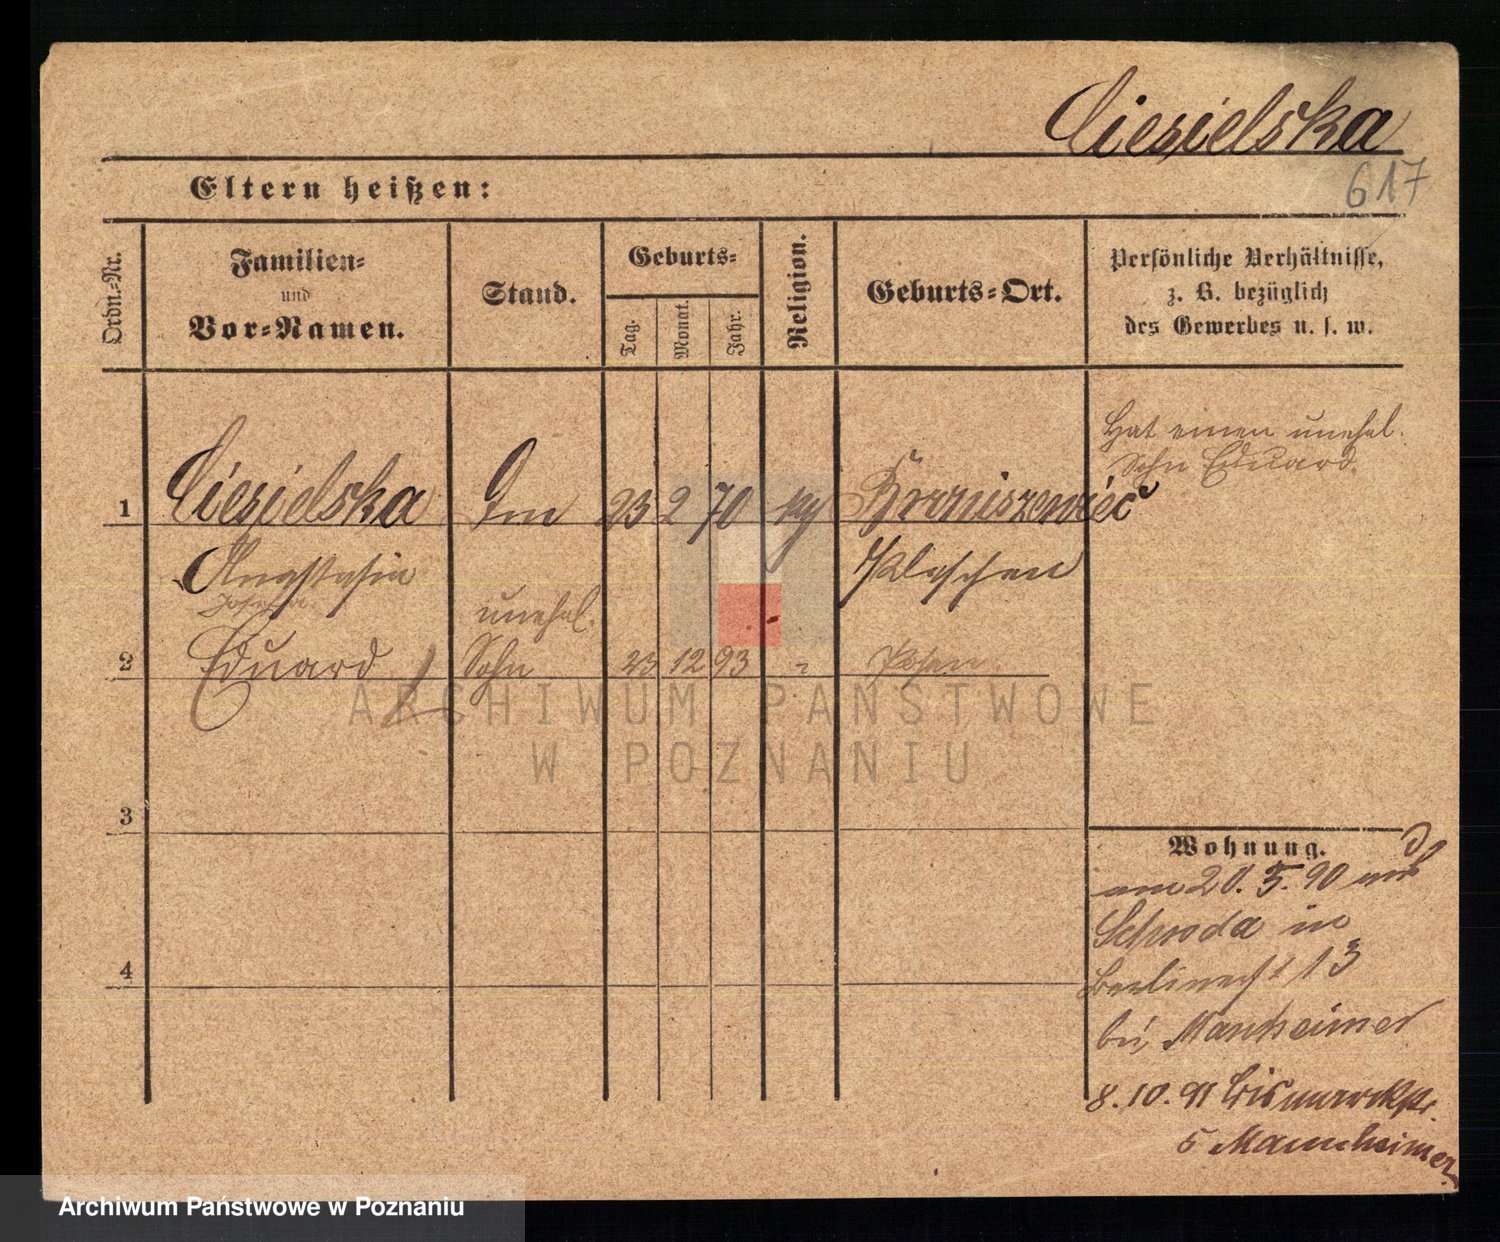 Ciesielska
617
Eltern heißen:
Ordn.-Nr.
Familien-
und
Vor-Namen.
Stand.
Geburts-
Tag.
Monat.
Jahr.
Religion.
Geburts-Ort.
Persönliche Verhältnisse,
z. B. bezüglich
des Gewerbes u. s. w.
Hat einen unehel.
Sohn Eduard.
1 Ciesielska 23 2 70
Anastasia Pleschen
unehel.
2 Eduard Sohn 23 12 93 " Posen
3
4
Wohnung.
am 20. 5. 90 aus
Schroda in
Berlinerst 13
bei Manheimer
8. 10. 91 Bismarckstr.
5 Mannheimer
ARCHIWUM PAŃSTWOWE
W POZNANIU
Archiwum Państwowe w Poznaniu